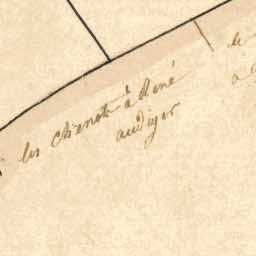 les chenots à René
audiger
le
à